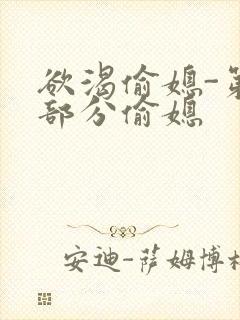 欲渴偷媳-第
部分偷媳
安迪-萨姆博格